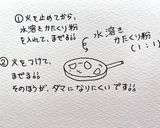 ①火を止めてから、
水溶きかたくり粉
を入れて、まぜます。
水溶き
かたくり粉
(1:1)
②火をつけて、
まぜます。
そのほうが、ダマになりにくいです。